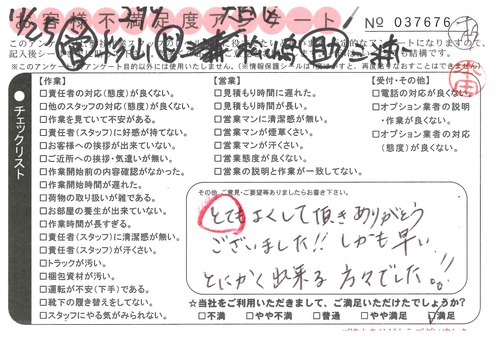 お客様不満足度アンケート
No 037676
【作業】
□責任者の対応(態度)が良くない。
□他のスタッフの対応(態度)が良くない。
□作業を見ていて不安がある。
□責任者(スタッフ)に好感が持てない。
□お客様への挨拶が出来ていない。
□ご近所への挨拶・気遣いが無い。
□作業開始前の内容確認がなかった。
□作業開始時間が遅れた。
□荷物の取り扱いが雑である。
□お部屋の養生が出来ていない。
□作業時間が長すぎる。
□責任者(スタッフ)に清潔感が無い。
□責任者(スタッフ)が汗くさい。
□トラックが汚い。
□梱包資材が汚い。
□運転が不安(下手)である。
□靴下の履き替えをしてない。
□スタッフにやる気がみられない。
【営業】
□見積もり時間に遅れた。
□見積もり時間が長い。
□営業マンに清潔感が無い。
□営業マンが煙草くさい。
□営業マンが汗くさい。
□営業態度が良くない。
□営業の説明と作業が一致してない。
【受付・その他】
□電話の対応が良くない。
□オプション業者の説明
・作業が良くない。
□オプション業者の対応
(態度)が良くない。
チェックリスト
その他、ご意見・ご要望等ありましたらお書き下さい。
とてもよくして頂きありがとう
ございました!! しかも早い。
とにかく出来る方々でした!!
☆当社をご利用いただきまして、ご満足いただけたでしょうか?
□不満 □やや不満 □普通 □やや満足 ☑満足